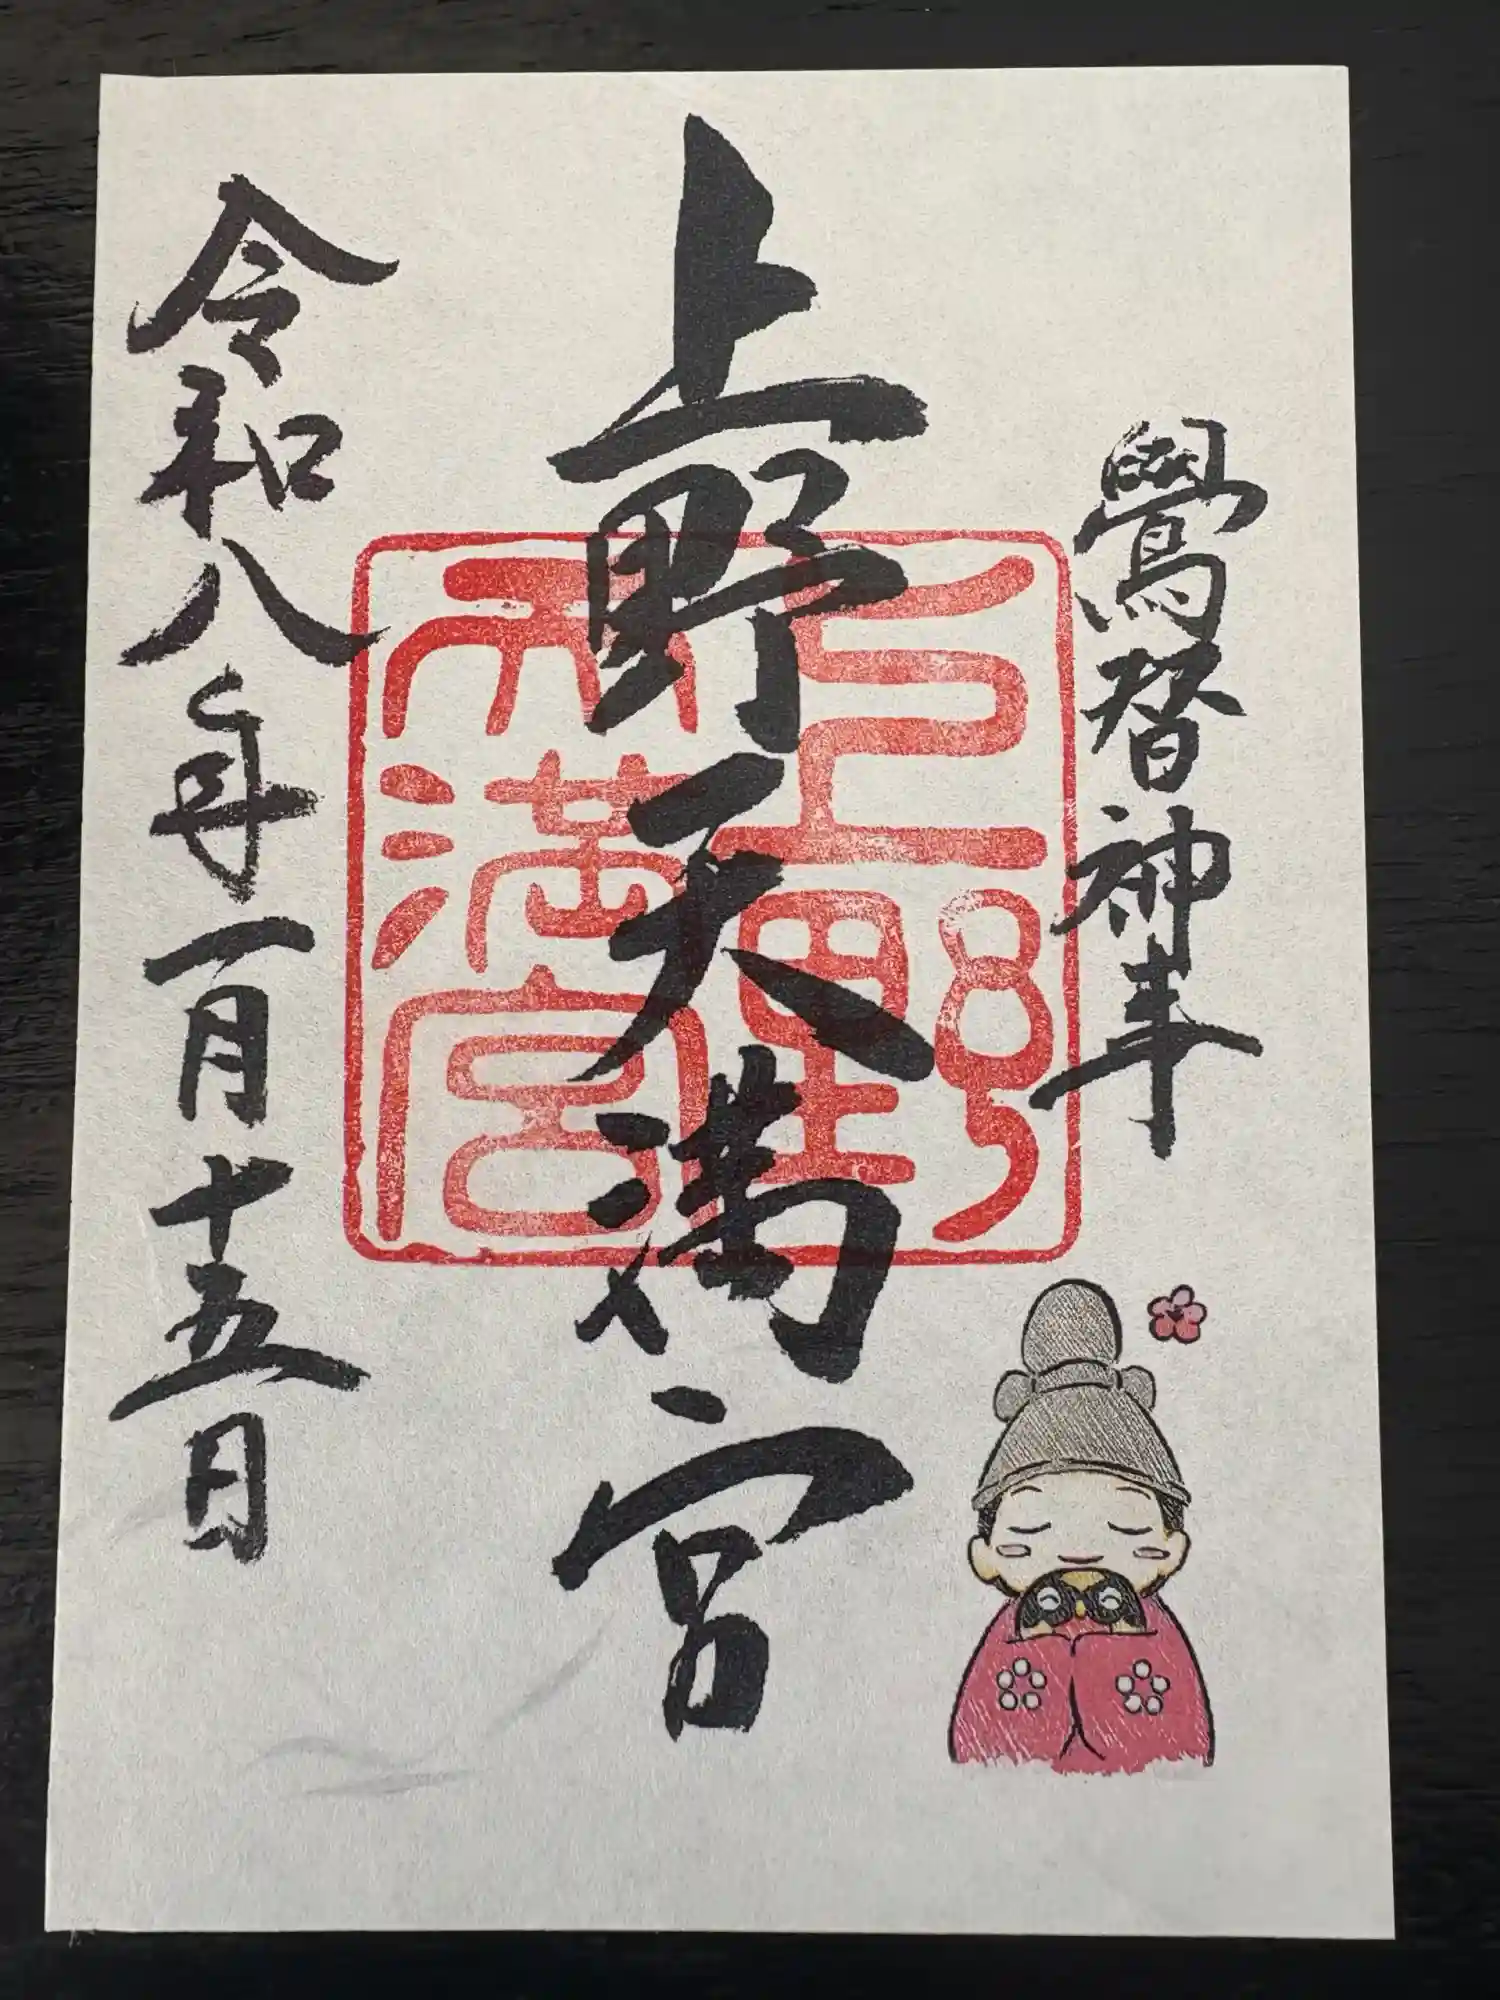 鷽替神事
上野天満宮
上野天満宮
令和八年一月十五日